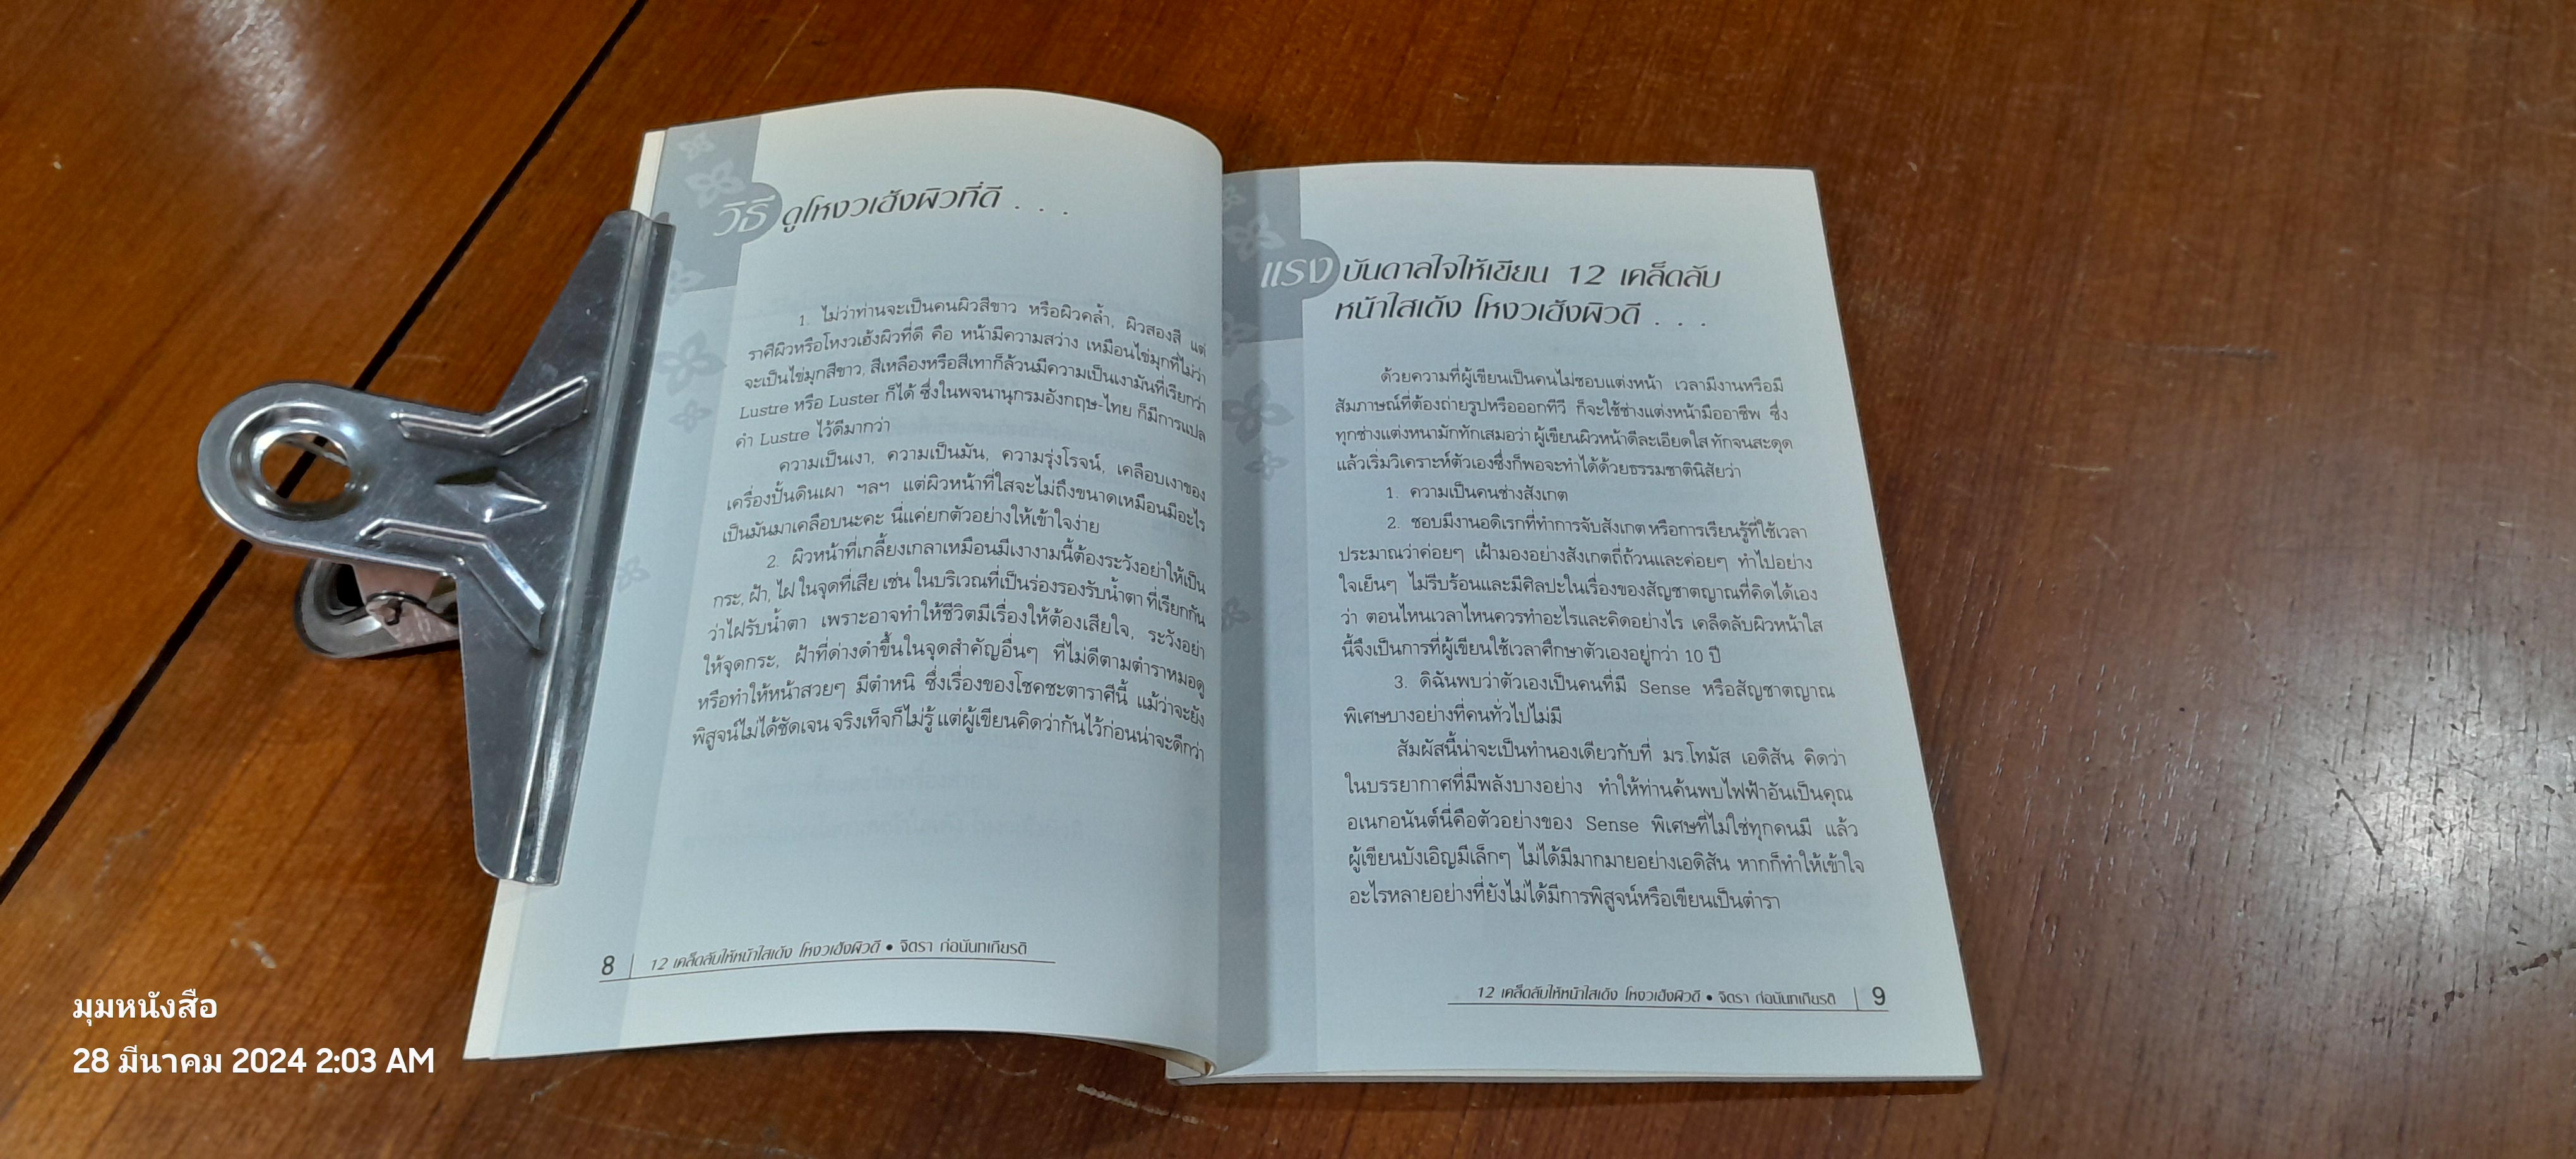 วิธีดูโหงวเฮ้งผิวที่ดี . . .
1. ไม่ว่าท่านจะเป็นคนผิวสีขาว หรือผิวคล้ำ, ผิวสองสี แต่
ราศีผิวหรือโหงวเฮ้งผิวที่ดี คือ หน้ามีความสว่าง เหมือนไข่มุกที่ไม่ว่า
จะเป็นไข่มุกสีขาว, สีเหลืองหรือสีเทาก็ล้วนมีความเป็นเงามันที่เรียกว่า
Lustre หรือ Luster ก็ได้ ซึ่งในพจนานุกรมอังกฤษ-ไทย ก็มีการแปล
คำ Lustre ไว้ดีมากว่า
ความเป็นเงา, ความเป็นมัน, ความรุ่งโรจน์, เคลือบเงาของ
เครื่องปั้นดินเผา ฯลฯ แต่ผิวหน้าที่ใสจะไม่ถึงขนาดเหมือนมีอะไร
เป็นมันมาเคลือบนะคะ นี่แค่ยกตัวอย่างให้เข้าใจง่าย
2. ผิวหน้าที่เกลี้ยงเกลาเหมือนมีเงางามนี้ต้องระวังอย่าให้เป็น
กระ, ฝ้า, ไฝ ในจุดที่เสีย เช่น ในบริเวณที่เป็นร่องรองรับน้ำตา ที่เรียกกัน
ว่าไฝรับน้ำตา เพราะอาจทำให้ชีวิตมีเรื่องให้ต้องเสียใจ, ระวังอย่า
ให้จุดกระ, ฝ้าที่ด่างดำขึ้นในจุดสำคัญอื่นๆ ที่ไม่ดีตามตำราหมอดู
หรือทำให้หน้าสวยๆ มีตำหนิ ซึ่งเรื่องของโชคชะตาราศีนี้ แม้ว่าจะยัง
พิสูจน์ไม่ได้ชัดเจน จริงเท็จก็ไม่รู้ แต่ผู้เขียนคิดว่ากันไว้ก่อนน่าจะดีกว่า
8 | 12 เคล็ดลับให้หน้าใสเด้ง โหงวเฮ้งผิวดี • จิตรา ก่อนันทเกียรติ
แรงบันดาลใจให้เขียน 12 เคล็ดลับ
หน้าใสเด้ง โหงวเฮ้งผิวดี . . .
ด้วยความที่ผู้เขียนเป็นคนไม่ชอบแต่งหน้า เวลามีงานหรือมี
สัมภาษณ์ที่ต้องถ่ายรูปหรือออกทีวี ก็จะใช้ช่างแต่งหน้ามืออาชีพ ซึ่ง
ทุกช่างแต่งหนามักทักเสมอว่า ผู้เขียนผิวหน้าดีละเอียดใส ทักจนสะดุด
แล้วเริ่มวิเคราะห์ตัวเองซึ่งก็พอจะทำได้ด้วยธรรมชาตินิสัยว่า
1. ความเป็นคนช่างสังเกต
2. ชอบมีงานอดิเรกที่ทำการจับสังเกต หรือการเรียนรู้ที่ใช้เวลา
ประมาณว่าค่อยๆ เฝ้ามองอย่างสังเกตถี่ถ้วนและค่อยๆ ทำไปอย่าง
ใจเย็นๆ ไม่รีบร้อนและมีศิลปะในเรื่องของสัญชาตญาณที่คิดได้เอง
ว่า ตอนไหนเวลาไหนควรทำอะไรและคิดอย่างไร เคล็ดลับผิวหน้าใส
นี้จึงเป็นการที่ผู้เขียนใช้เวลาศึกษาตัวเองอยู่กว่า 10 ปี
3. ดิฉันพบว่าตัวเองเป็นคนที่มี Sense หรือสัญชาตญาณ
พิเศษบางอย่างที่คนทั่วไปไม่มี
สัมผัสนี้น่าจะเป็นทำนองเดียวกับที่ มร.โทมัส เอดิสัน คิดว่า
ในบรรยากาศที่มีพลังบางอย่าง ทำให้ท่านค้นพบไฟฟ้าอันเป็นคุณ
อเนกอนันต์นี่คือตัวอย่างของ Sense พิเศษที่ไม่ใช่ทุกคนมี แล้ว
ผู้เขียนบังเอิญมีเล็กๆ ไม่ได้มีมากมายอย่างเอดิสัน หากก็ทำให้เข้าใจ
อะไรหลายอย่างที่ยังไม่ได้มีการพิสูจน์หรือเขียนเป็นตำรา
12 เคล็ดลับให้หน้าใสเด้ง โหงวเฮ้งผิวดี • จิตรา ก่อนันทเกียรติ | 9
มุมหนังสือ
28 มีนาคม 2024 2:03 AM